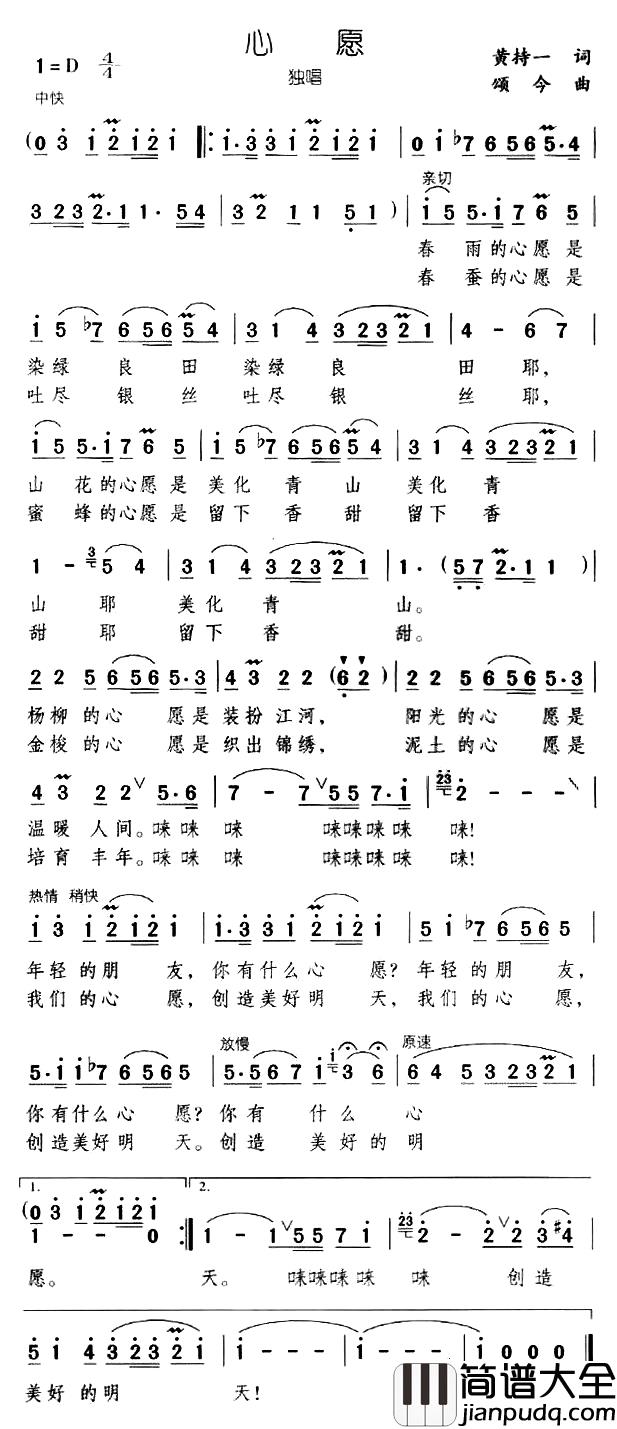 心愿
1=D 4/4
独唱
黄持一 词
颂今 曲
中快
(0 3 1 2 1 2 1 ‖: 1·3 3 1 2 1 2 1 | 0 1 ♭7 6 5 6 5·4 |
亲切
3 2 3 2·1 1· 5 4 | 3 2 1 1 5 1 ) | 1 5 5·1 7 6 5 |
春雨的心愿是
春蚕的心愿是
1 5 ♭7 6 5 6 5 4 | 3 1 4 3 2 3 2 1 | 4 - 6 7 |
染绿良田染绿良田耶,
吐尽银丝吐尽银丝耶,
1 5 5·1 7 6 5 | 1 5 ♭7 6 5 6 5 4 | 3 1 4 3 2 3 2 1 |
山花的心愿是美化青山美化青
蜜蜂的心愿是留下香甜留下香
1 - 3 5 4 | 3 1 4 3 2 3 2 1 | 1· ( 5 7 2·1 1 ) |
山耶美化青山。
甜耶留下香甜。
2 2 5 6 5 6 5·3 | 4 3 2 2 (6 2) | 2 2 5 6 5 6 5·3 |
杨柳的心愿是装扮江河,阳光的心愿是
金梭的心愿是织出锦绣,泥土的心愿是
4 3 2 2 ∨ 5·6 | 7 - 7 ∨ 5 5 5 7·1 | 2 3 2 - - - |
温暖人间。咪咪咪咪咪咪咪咪!
培育丰年。咪咪咪咪咪咪咪咪!
热情 稍快
1 3 1 2 1 2 1 | 1·3 3 1 2 1 2 1 | 5 1 ♭7 6 5 6 5 |
年轻的朋友,你有什么心愿?年轻的朋友,
我们的心愿,创造美好明天,我们的心愿,
放慢 原速
5·1 1 ♭7 6 5 6 5 | 5·5 6 7 1 1 3 6 | 6 4 5 3 2 3 2 1 |
你有什么心愿?你有什么心
创造美好明天。创造美好的明
1. 2.
(0 3 1 2 1 2 1
1 - - 0 :‖ 1 - 1 ∨ 5 5 7 1 | 2 3 2 - 2 ∨ 2 3 #4 |
愿。天。咪咪咪咪咪创造
5 1 4 3 2 3 2 1 | 1 - - - | 1 - - - | 1 0 0 0 ‖
美好的明天!
简谱大全
jianpudq.com